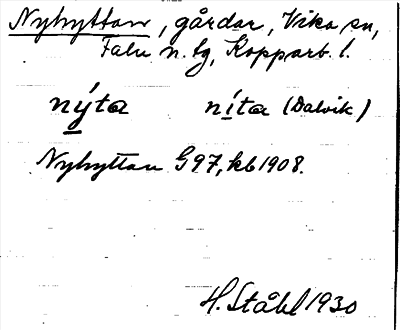 Nyhyttan, gårdar, Vika sn,
Falu n. tg, Kopparb. l.
nýta níta (Dalvik)
Nyhyttan G97, kb 1908.
H. Ståhl 1930